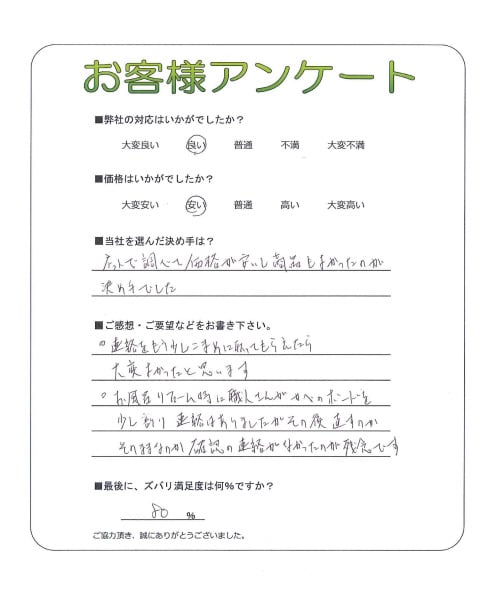 お客様アンケート
■弊社の対応はいかがでしたか？
大変良い 良い 普通 不満 大変不満
■価格はいかがでしたか？
大変安い 安い 普通 高い 大変高い
■当社を選んだ決め手は？
ネットで調べて価格が安いし商品もよかったのが
決め手でした
■ご感想・ご要望などをお書き下さい。
○連絡をもう少しこまめに取ってもらえたら
大変よかったと思います
○お風呂リフォーム時に職人さんがカベのボードを
少し割り 連絡はありましたがその後直すのか
そのままなのか確認の連絡がなかったのが残念です
■最後に、ズバリ満足度は何％ですか？
80 ％
ご協力頂き、誠にありがとうございました。